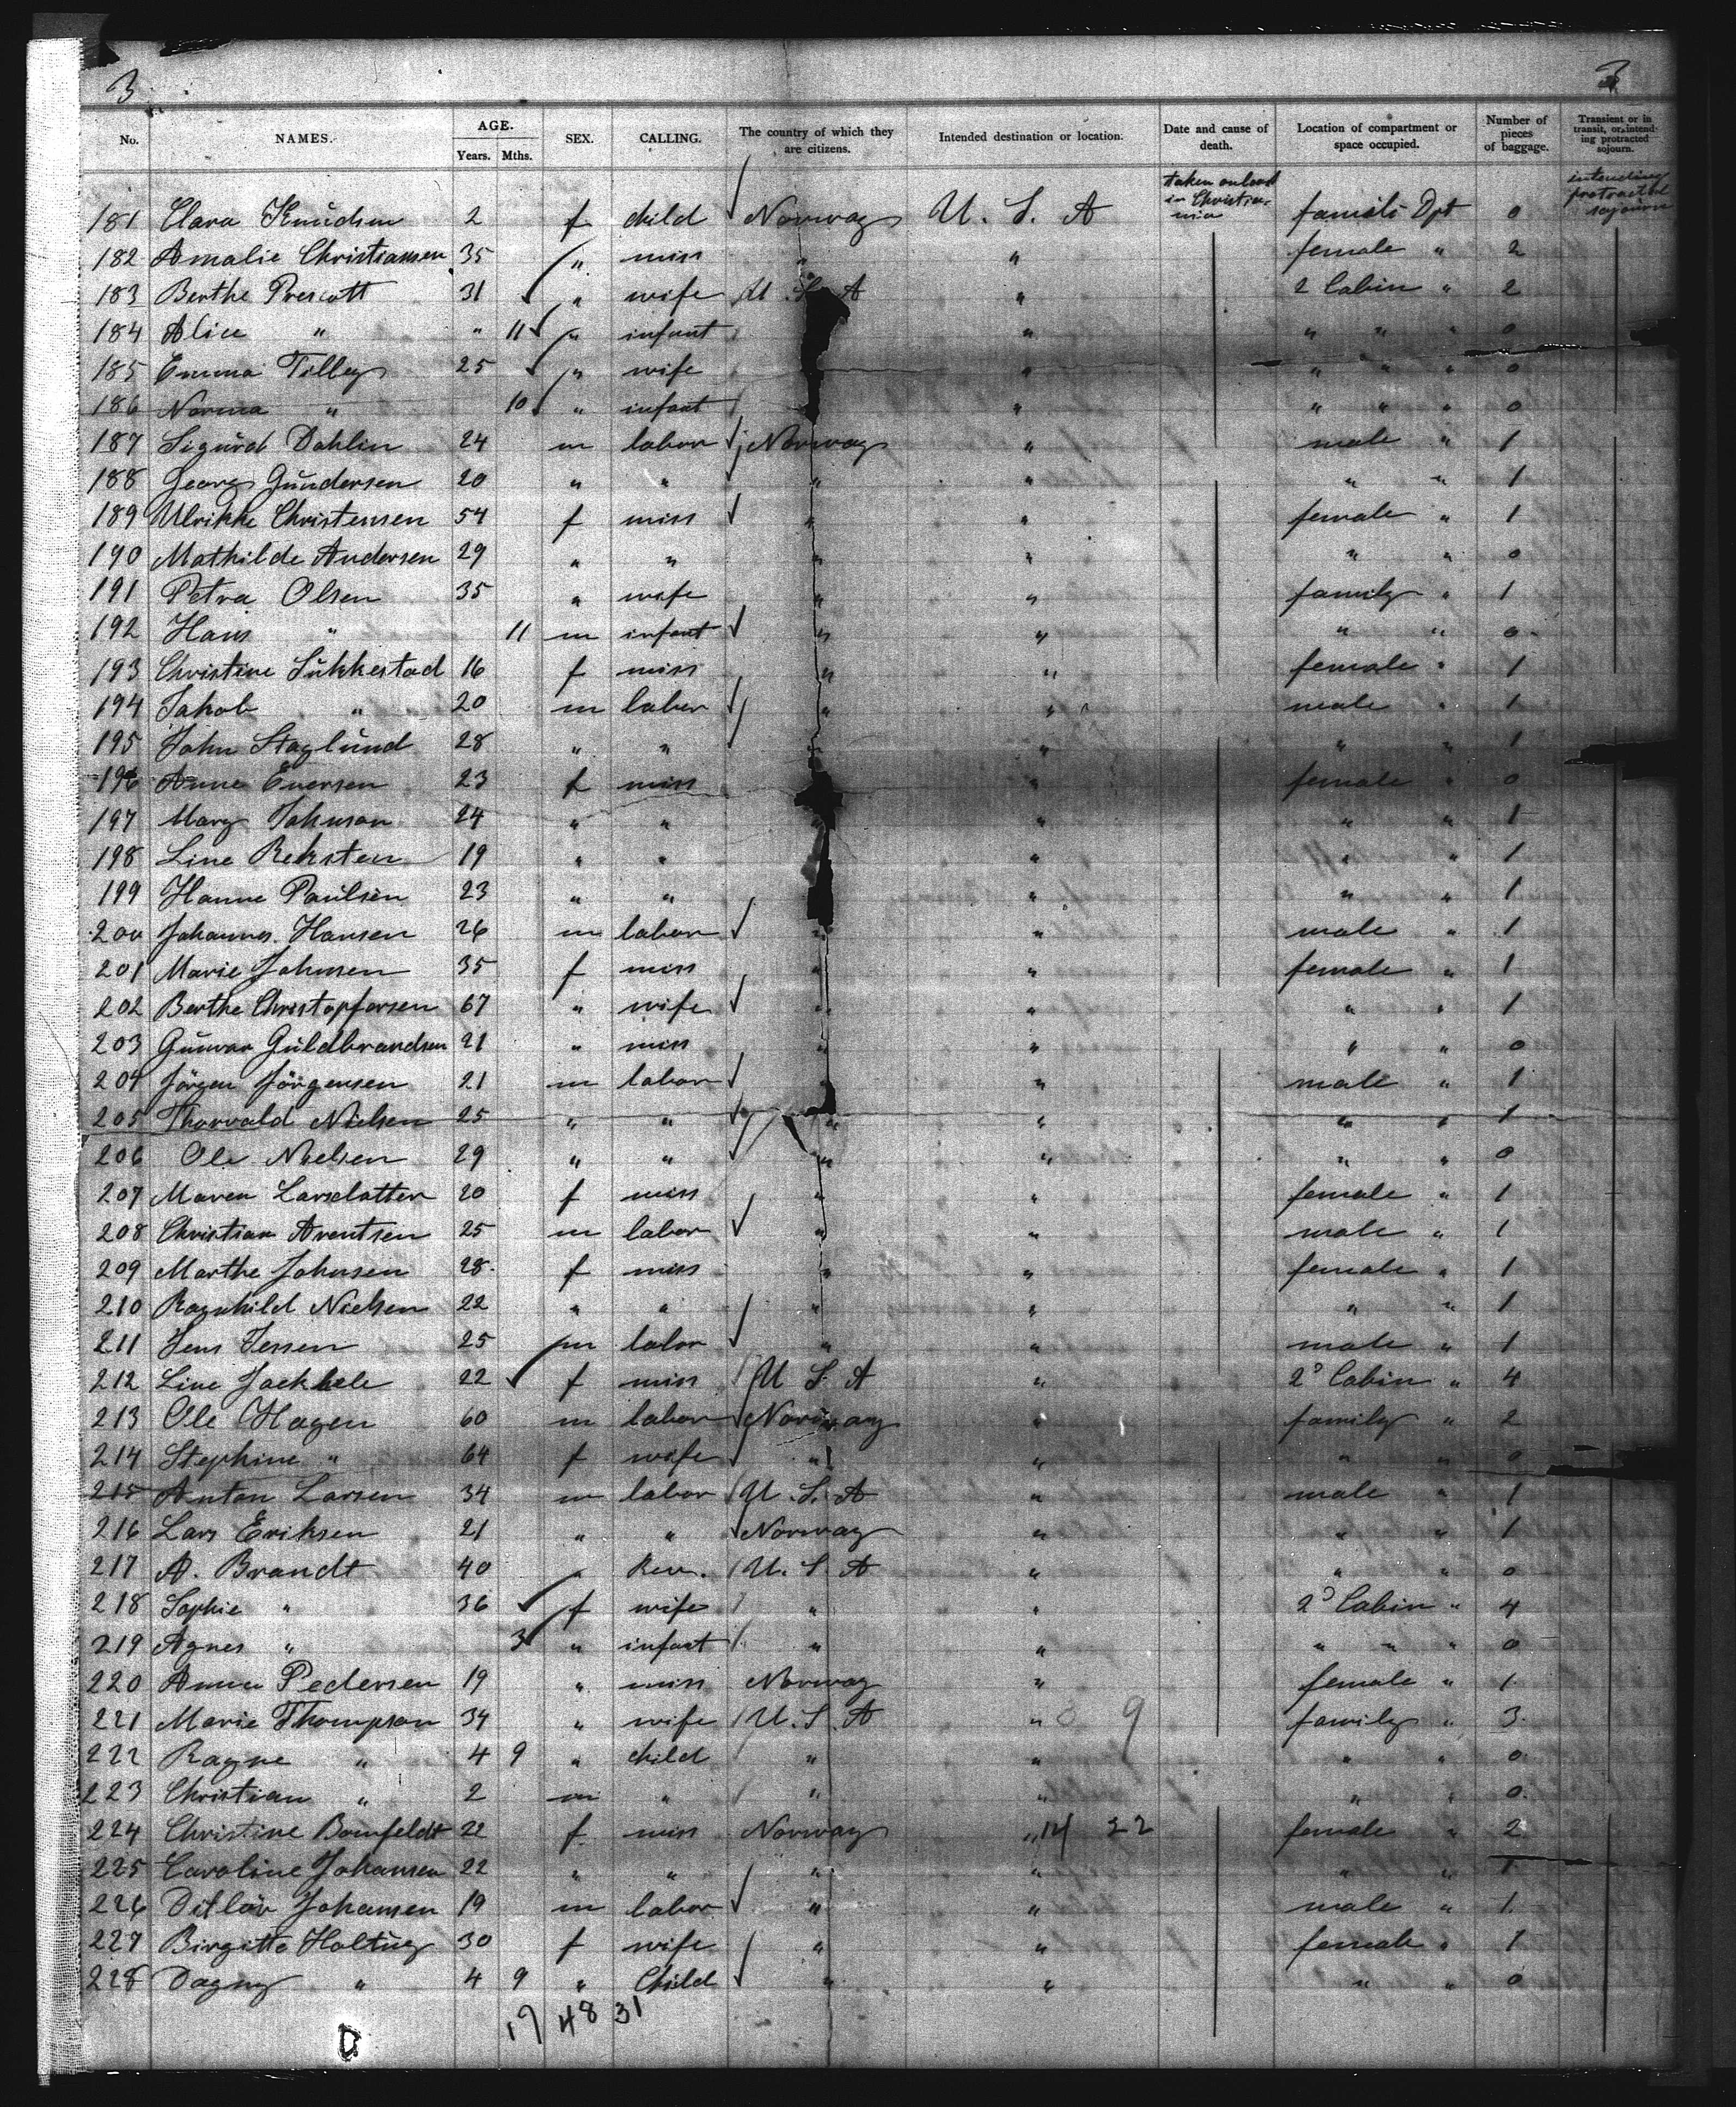 3 3
No. NAMES. AGE. Years. Mths. SEX. CALLING. The country of which they are citizens. Intended destination or location. Date and cause of death. Location of compartment or space occupied. Number of pieces of baggage. Transient or in transit, or intending protracted sojourn.
taken onboard in Christiania intending protracted sojourn
181 Clara Knudsen 2 f child Norway U. S. A Dpt 0
182 Amalie Christiansen 35 " miss " " female " 2
183 Berthe Prescott 31 " wife U S A " 2 Cabin " 2
184 Alice " " 11 " infant " " " " 0
185 Emma Tilley 25 " wife " " " " 0
186 Norma " 10 " infant " " " " 0
187 Sigurd Dahlin 24 m labor Norway " male " 1
188 Georg Gundersen 20 " " " " " " 1
189 Ulrikke Christensen 54 f miss " " female " 1
190 Mathilde Andersen 29 " " " " " " 0
191 Petra Olsen 35 " wife " " family " 1
192 Hans " 11 m infant " " " " 0
193 Christine Lukkestad 16 f miss " " female " 1
194 Jakob " 20 m labor " " male " 1
195 John Staglund 28 " " " " " " 1
196 Anne Evensen 23 f miss " female " 0
197 Mary Johnson 24 " " " " " " 1
198 Line Reksten 19 " " " " " 1
199 Hanne Paulsen 23 " " " " " 1
200 Johannes Hansen 26 m labor " " male " 1
201 Marie Johnsen 35 f miss " " female " 1
202 Berthe Christopfersen 67 " wife " " " " 1
203 Gunvor Guldbrandsen 21 " miss " " " " 0
204 Jörgen Jörgensen 21 m labor " " male " 1
205 Thorvald Nielsen 25 " " " " " " 1
206 Ole Nielsen 29 " " " " " " 0
207 Maren Larsdatter 20 f miss " " female " 1
208 Christian Arentsen 25 m labor " " male " 1
209 Marthe Johnsen 28 f miss " " female " 1
210 Ragnhild Nielsen 22 " " " " " 1
211 Jens Jessen 25 m labor " " male " 1
212 Line 22 f miss U S A " 2d Cabin " 4
213 Ole Hagen 60 m labor Norway " family " 2
214 Stephine " 64 f wife " " " " 0
215 Anton Larsen 34 m labor U. S. A " male " 1
216 Lars Eriksen 21 " " Norway " " " 1
217 A. Brandt 40 " Rev. U. S. A " " " 0
218 Sophie " 36 f wife " " 2d Cabin " 4
219 Agnes " 3 " infant " " " " " 0
220 Anna Pedersen 19 " miss Norway " female " 1
221 Marie Thompson 34 " wife U. S. A " 9 family " 3
222 Ragne " 4 9 " child " " " " 0
223 Christian " 2 m " " " " " 0
224 Christine Bomfeldt 22 f miss Norway " 14 22 female " 2
225 Caroline Johansen 22 " " " " " " 1
226 Ditlev Johansen 19 m labor " " male " 1
227 Birgitte 30 f wife " " female " 1
228 Dagny " 4 9 " Child " " " " 0
17 48 31